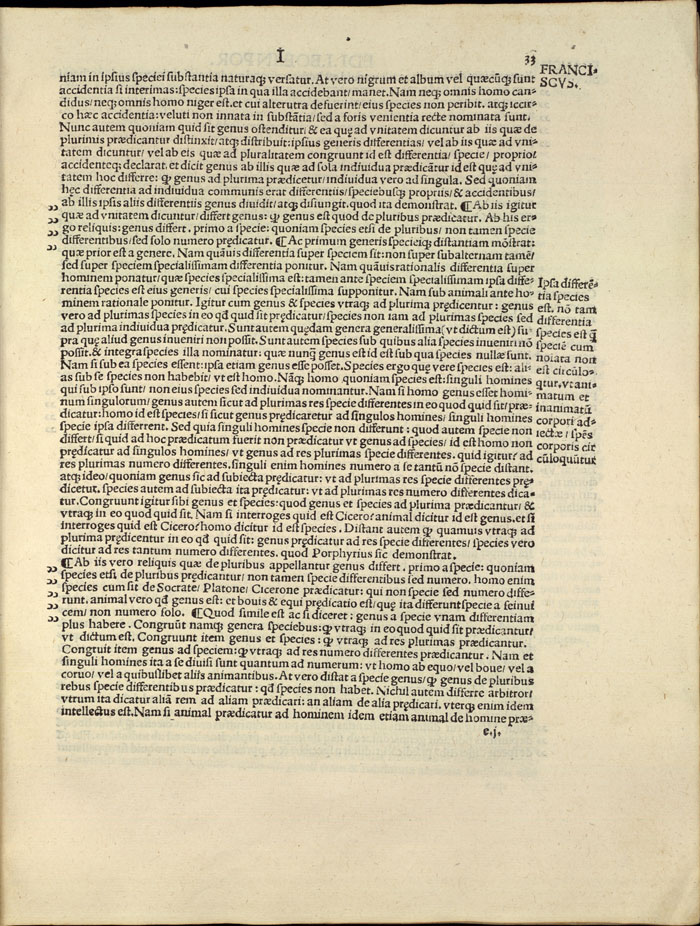 I
33
FRANCI-
SCVS.
niam in ipsius speciei substantia naturaqȝ versatur. At vero nigrum et album vel quæcūqȝ sunt
accidentia si interimas: species ipsa in qua illa accidebant/ manet. Nam neqȝ omnis homo can-
didus/ neqȝ omnis homo niger est. et cui alterutra defuerint/ eius species non peribit. atqȝ idcir-
co hæc accidentia: veluti non innata in substātia/ sed a foris venientia recte nominata sunt.
Nunc autem quoniam quid sit genus ostenditur/ & ea quę ad vnitatem dicuntur ab iis quæ de
plurimis prædicantur distinxit/ atqȝ distribuit: ipsius generis differentias/ vel ab iis quæ ad vni-
tatem dicuntur/ vel ab eis quæ ad pluralitatem congruunt id est differentia/ specie/ proprio/
accidenteqȝ declarat. et dicit genus ab illis quæ ad sola indiuidua prædicātur id est quę ad vni-
tatem hoc differre: ꝙ genus ad plurima prædicetur/ indiuidua vero ad singula. Sed quoniam
hęc differentia ad indiuidua communis erat differentiis/ speciebusqȝ propriis/ & accidentibus/
ab illis ipsis aliis differentiis genus diuidit/ atqȝ disiungit. quod ita demonstrat. ¶Ab iis igitur
quæ ad vnitatem dicuntur/ differt genus: ꝙ genus est quod de pluribus prædicatur. Ab his er-
go reliquis: genus differt. primo a specie: quoniam species etsi de pluribus/ non tamen specie
differentibus/ sed solo numero prędicatur. ¶Ac primum generis specieiqȝ distantiam mōstrat:
quæ prior est a genere. Nam quāuis differentia super speciem sit: non super subalternam tamē/
sed super speciem specialissimam differentia ponitur. Nam quāuis rationalis differentia super
hominem ponatur/ quæ species specialissima est: tamen ante speciem specialissimam ipsa diffe-
rentia species est eius generis/ cui species specialissima supponitur. Nam sub animali ante ho-
minem rationale ponitur. Igitur cum genus & species vtraqȝ ad plurima prędicentur: genus
vero ad plurimas species in eo qđ quid sit prędicatur/ species non iam ad plurimas species sed
ad plurima indiuidua prędicatur. Sunt autem quędam genera generalissima (vt dictum est) su-
pra quę aliud genus inueniri non possit. Sunt autem species sub quibus alia species inueniri nō
possit. & integra species illa nominatur: quæ nunqͣ genus est id est sub qua species nullæ sunt.
Nam si sub ea species essent: ipsa etiam genus esse posset. Species ergo quę vere species est: ali-
as sub se species non habebit/ vt est homo. Nāqȝ homo quoniam species est: singuli homines
qui sub ipso sunt/ non eius species sed indiuidua nominantur. Nam si homo genus esset homi-
num singulorum/ genus autem sicut ad plurimas res specie differentes in eo quod quid sit/ præ-
dicatur: homo id est species/ si sicut genus prędicaretur ad singulos homines/ singuli homines
specie ipsa differrent. Sed quia singuli homines specie non differunt: quod autem specie non
differt/ si quid ad hoc prædicatum fuerit non prædicatur vt genus ad species/ id est homo non
pręd̄icatur ad singulos homines/ vt genus ad res plurimas specie differentes. quid igitur/ ad
res plurimas numero differentes. singuli enim homines numero a se tantū nō specie distant.
atqȝ ideo/ quoniam genus sic ad subiecta prędicatur: vt ad plurimas res specie differentes prę-
dicetur. species autem ad subiecta ita prędicatur: vt ad plurimas res numero differentes dica-
tur. Congruunt igitur sibi genus et species: quod genus et species ad plurima prædicantur/ &
vtraqȝ in eo quod quid sit. Nam si interroges quid est Cicero? animal dicitur id est genus. et si
interroges quid est Cicero? homo dicitur id est species. Distant autem ꝙ quamuis vtraqȝ ad
plurima prędicentur in eo qđ quid sit: genus prędicatur ad res specie differentes/ species vero
dicitur ad res tantum numero differentes. quod Porphyrius sic demonstrat.
¶Ab iis vero reliquis quæ de pluribus appellantur genus differt. primo a specie: quoniam
species etsi de pluribus prędicantur/ non tamen specie differentibus sed numero. homo enim
species cum sit de Socrate/ Platone/ Cicerone prædicatur: qui non specie sed numero diffe-
runt. animal vero qđ genus est: et bouis & equi prędicatio est/ quę ita differunt specie a seinui-
cem/ non numero solo. ¶Quod simile est ac si diceret: genus a specie vnam differentiam
plus habere. Congruūt namqȝ genera speciebus: ꝙ vtraqȝ in eo quod quid sit prædicantur/
vt dictum est. Congruunt item genus et species: ꝙ vtraqȝ ad res plurimas prædicantur.
Congruit item genus ad speciem: ꝙ vtraqȝ ad res numero differentes prædicantur. Nam et
singuli homines ita a se diuisi sunt quantum ad numerum: vt homo ab equo/ vel boue/ vel a
coruo/ vel a quibuslibet aliis animantibus. At vero distat a specie genus/ ꝙ genus de pluribus
rebus specie differentibus prædicatur: qđ species non habet. Nichil autem differre arbitror/
vtrum ita dicatur aliā rem ad aliam prædicari: an aliam de alia prędicari. vterqȝ enim idem
intellectus est. Nam si animal prædicatur ad hominem idem etiam animal de homine præ-
e.j.
Ipsa differē-
tia species
est. nō tam
differentia
species est ꝗ̄
speciē cum
noiata non
est circulo-
qtur. vt ani-
matum et
inanimatū
corpori ad-
iectæ/ spēs
corporis cir
cūloquūtur